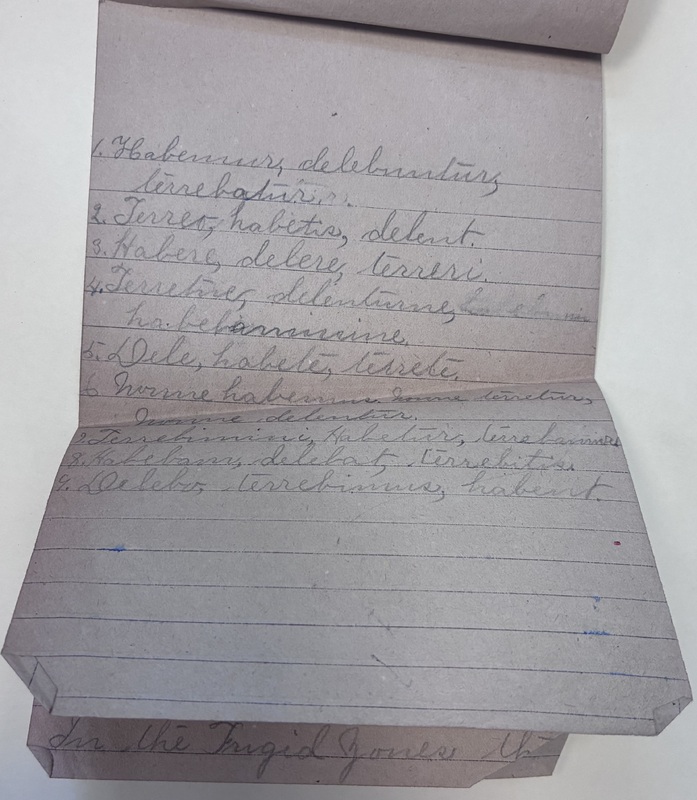 1. Habemur, delebuntur,
terrebatur.
2. Terreo, habetis, delent.
3. Habere, delere, terreri.
4. Terreturne, delenturne,
habebaminine.
5. Dele, habete, terrete.
6 Nonne habemus, Nonne terretur,
Nonne delentur.
7. Terrebimini, Habetur, terrebamini
8. Habebam, delebat, terrebitis.
9. Delebo, terrebimus, habent.
In the Frigid Zones th